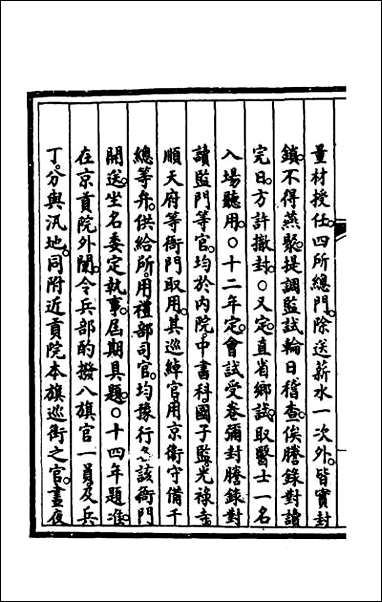 量材授任。四所總門。除送薪水一次外。皆實封
鎖。不得燕褻。提調監試輪日稽查。俟謄錄對讀
完日。方許撤封。○又定。直省鄉試。取醫士一名
入場聽用。○十二年定。會試受卷彌封謄錄對
讀監門等官。均於內院。中書科。國子監。光祿寺
順天府等衙門取用。其巡綽官用京衛守備千
總等弁。供給所。用禮部司官。均豫行各該衙門
開送。坐名委定執事。屆期具題。○十四年題准。
在京貢院外闈。令兵部酌撥八旗官一員及兵
丁。分與汛地。同附近貢院本旗巡街之官。晝夜